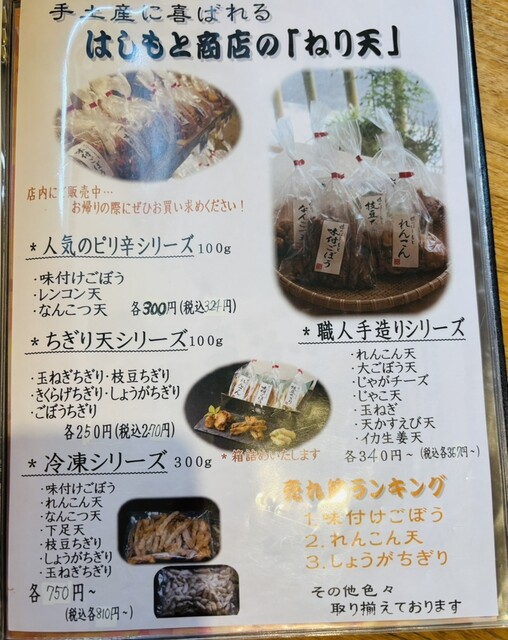 手土産に喜ばれる
はしもと商店の「ねり天」
店内にて販売中…
お帰りの際にぜひお買い求めください！
* 人気のピリ辛シリーズ 100g
・味付けごぼう
・レンコン天
・なんこつ天 各300円(税込324円)
* ちぎり天シリーズ 100g
・玉ねぎちぎり・枝豆ちぎり
・きくらげちぎり・しょうがちぎり
・ごぼうちぎり
各250円(税込270円)
* 職人手造りシリーズ
・れんこん天
・大ごぼう天
・じゃがチーズ
・じゃこ天
・玉ねぎ
・天かすえび天
・イカ生姜天
各340円～(税込各367円～)
* 箱詰めいたします
* 冷凍シリーズ 300g
・味付けごぼう
・れんこん天
・なんこつ天
・下足天
・枝豆ちぎり
・しょうがちぎり
・玉ねぎちぎり
各750円～
(税込各810円～)
売れ筋ランキング
1.味付けごぼう
2.れんこん天
3.しょうがちぎり
その他色々
取り揃えております
なんこつ
味付ごぼう
枝豆
れんこん